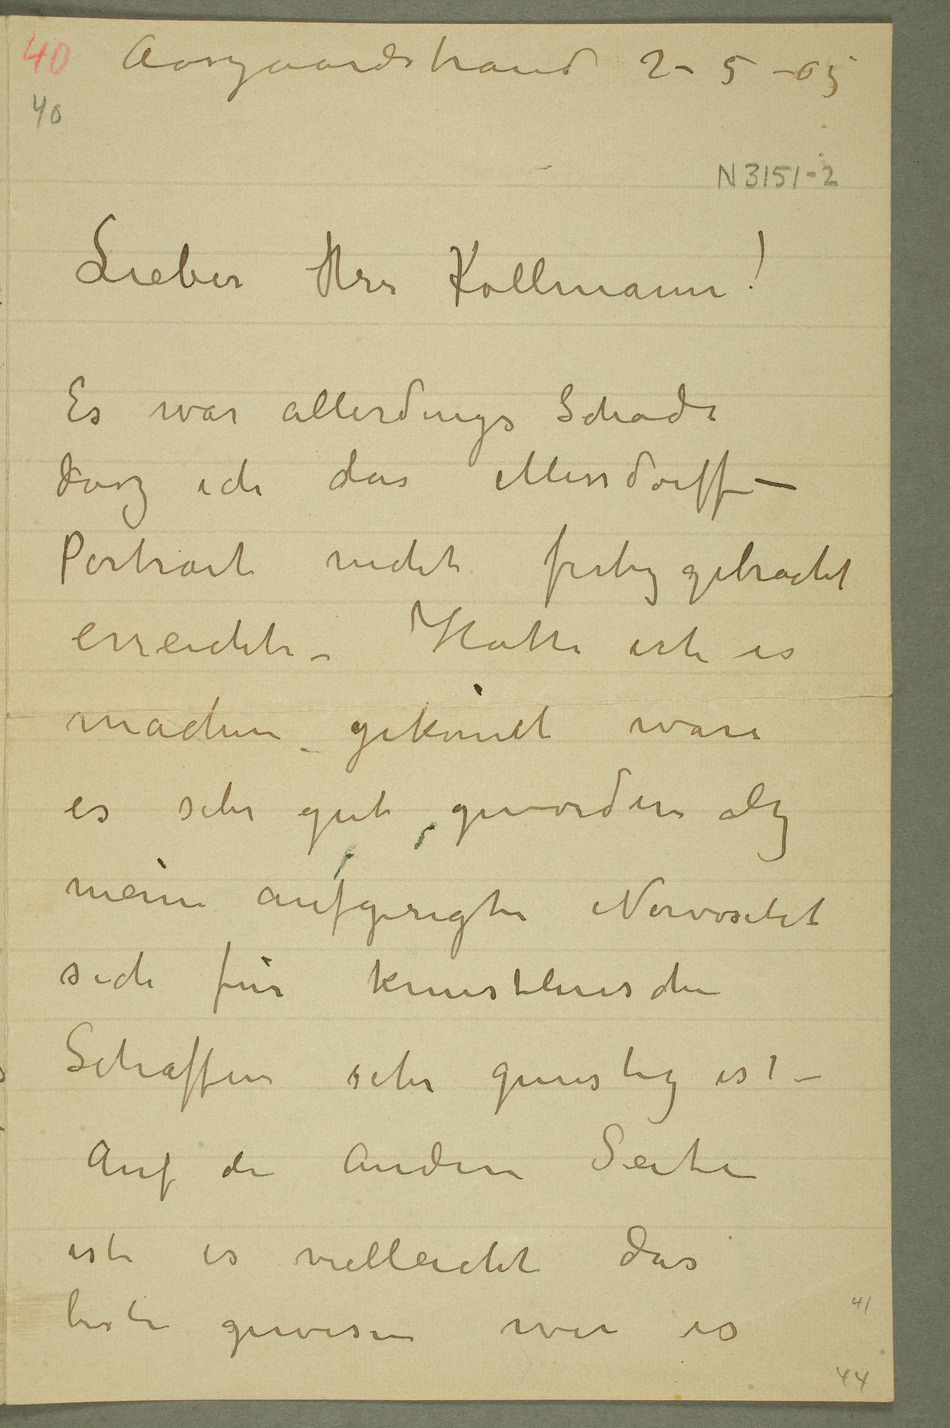 40 Aasgaardstrand 2-5-05
40
N 3151-2
Lieber Herr Kollmann!
Es war allerdings Schade
dasz ich das Mensdorff –
Portrait nicht fertig gebracht
erreichte – Hatte ich es
machen gekönnt ware
es sehr gut geworden da
meine aufgeregte Nervositet
sich für kunstlerischen
Schaffen sehr gunstig ist –
Auf die andern Seite
ist es vielleicht das
beste gewesen wie es
41
44